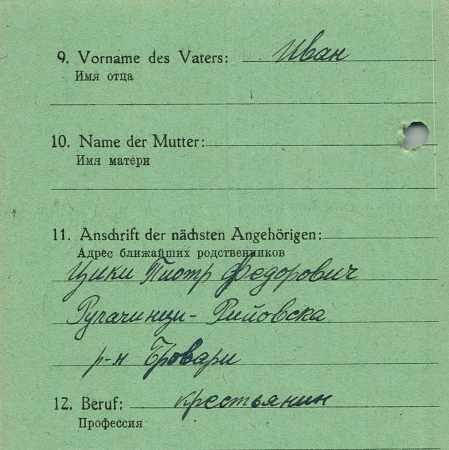 9. Vorname des Vaters: Иван
Имя отца
10. Name der Mutter:
Имя матери
11. Anschrift der nächsten Angehörigen:
Адрес ближайших родственников
Пиотр Федорович
р-н Бровари
12. Beruf: крестьянин
Профессия